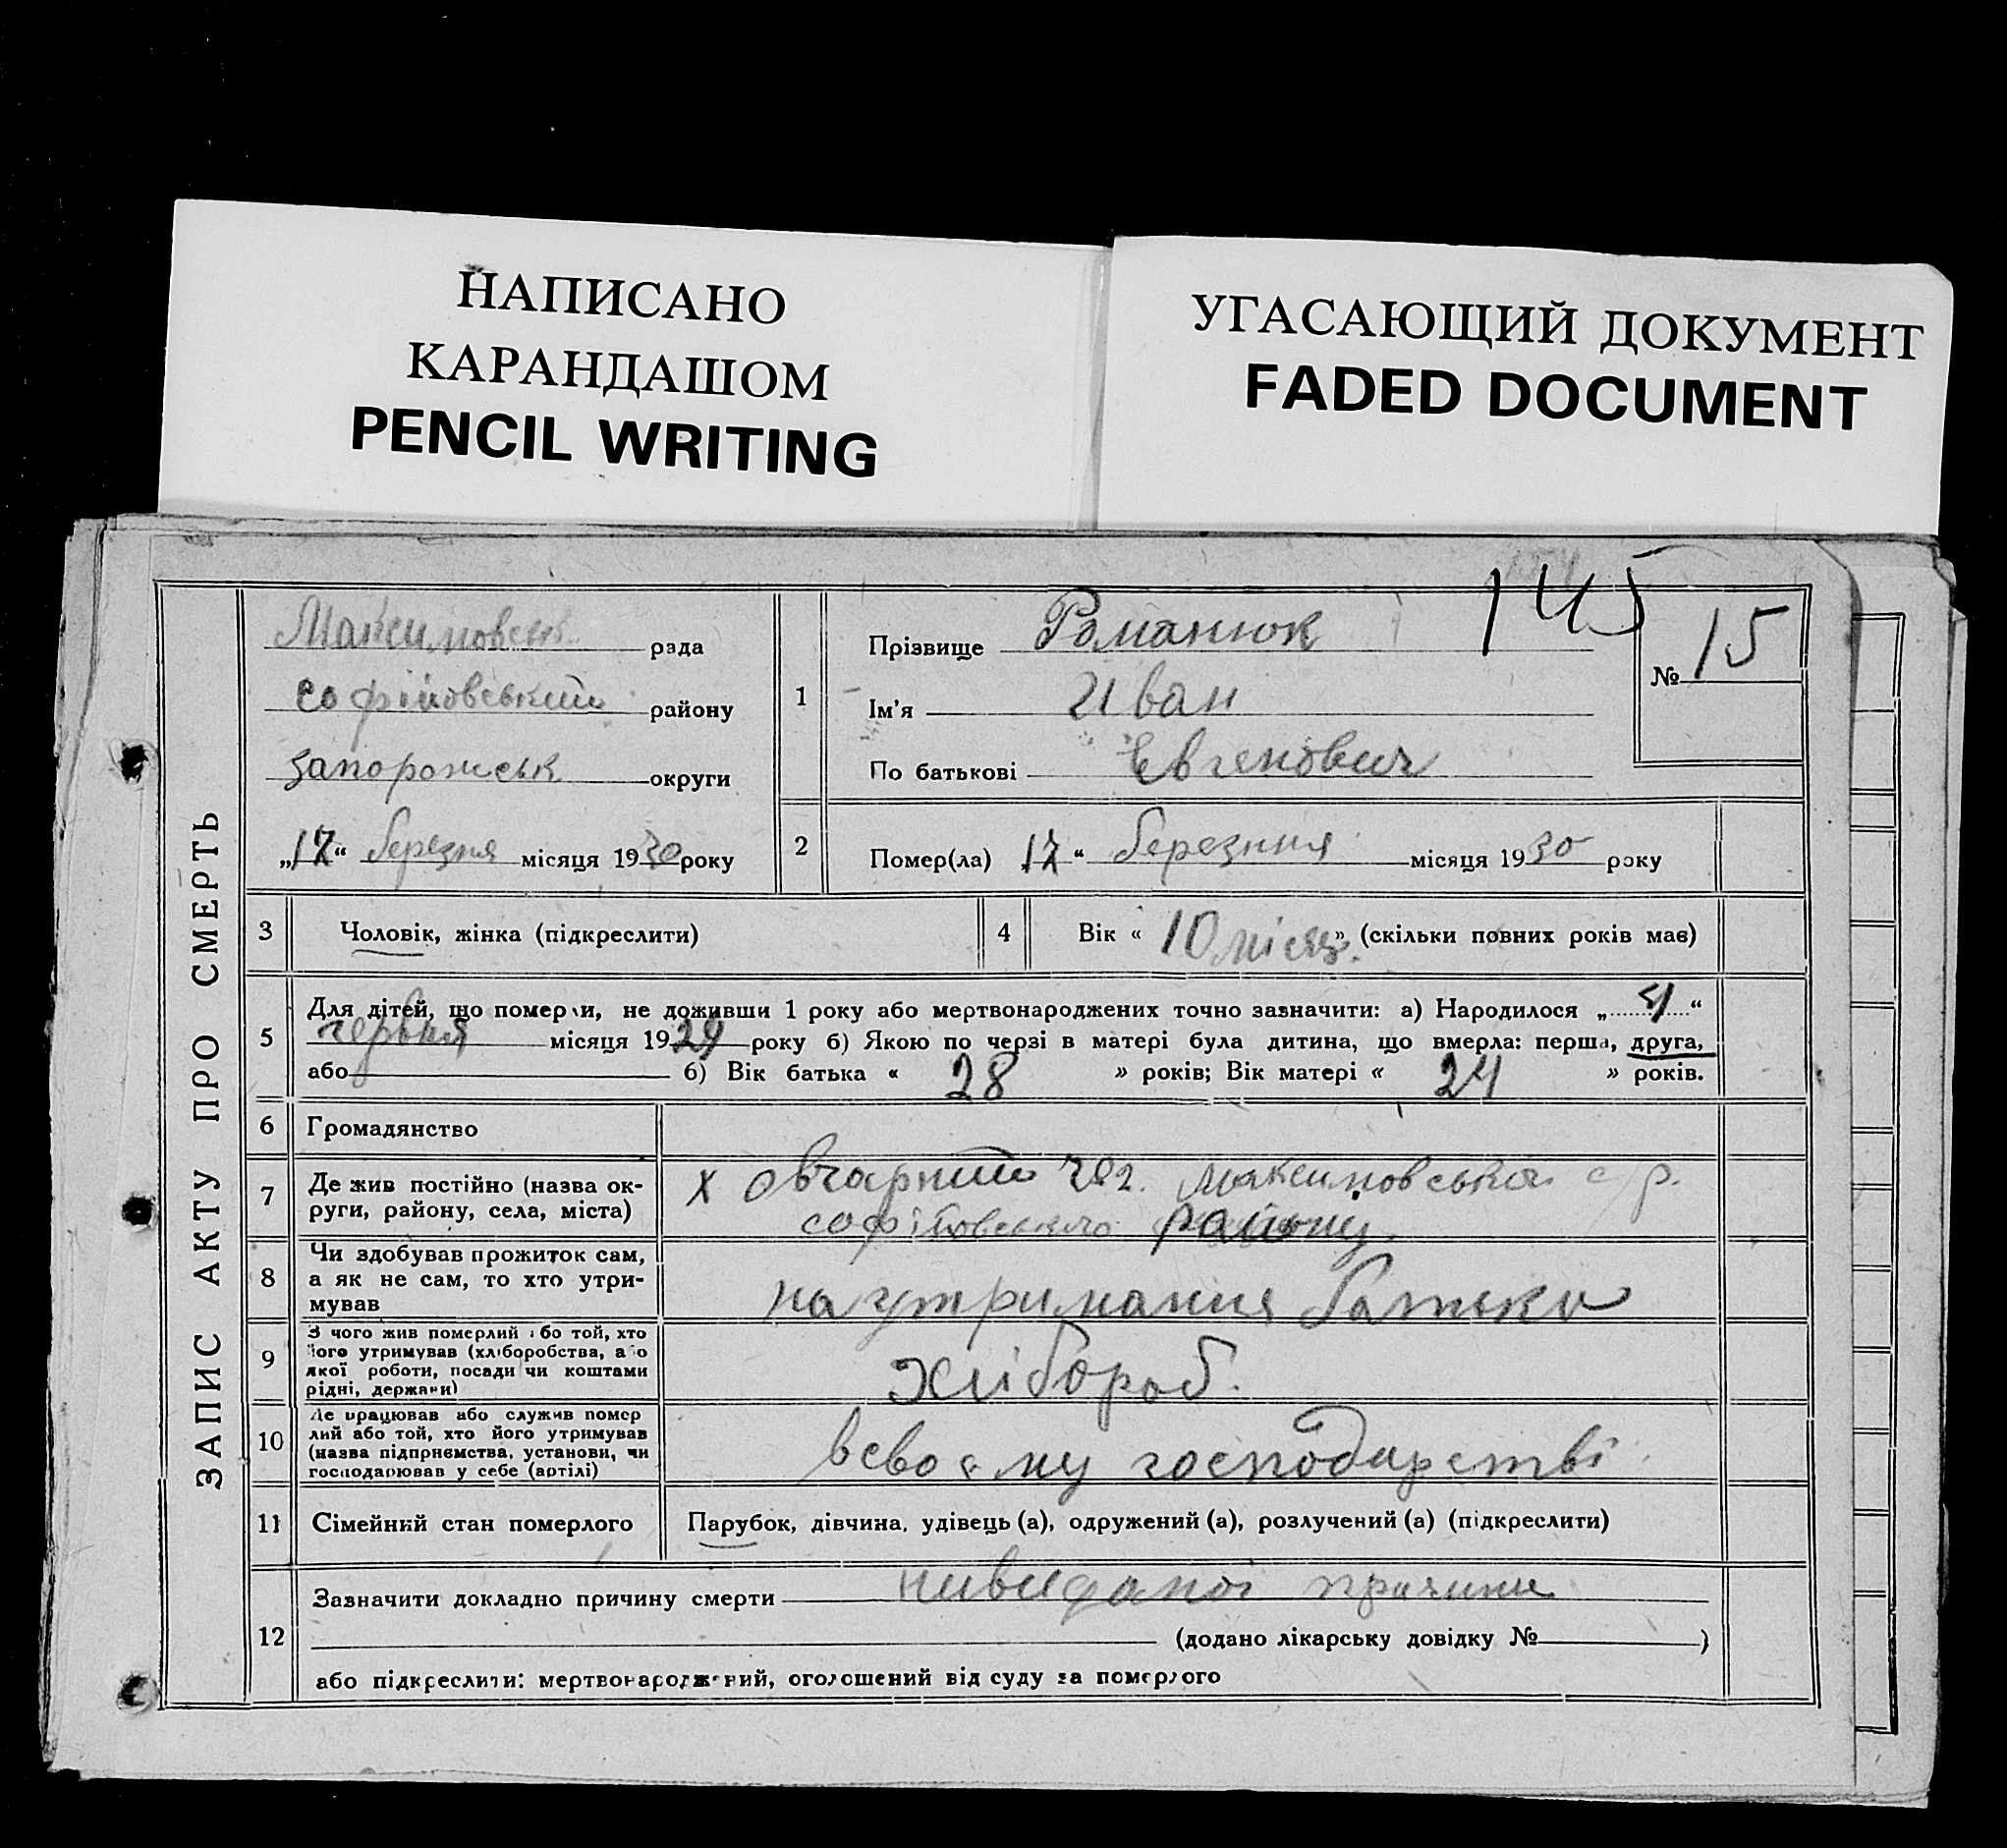 НАПИСАНО
КАРАНДАШОМ
PENCIL WRITING
УГАСАЮЩИЙ ДОКУМЕНТ
FADED DOCUMENT
145
ЗАПИС АКТУ ПРО СМЕРТЬ
Максимовськ рада
софіїовський району
запорожськ округи
„17“ березня місяця 1930 року
1
Прізвище Романюк
Ім'я Иван
По батькові Евгенович
№ 15
2 Помер(ла) 17 “ березння місяця 1930 року
3 Чоловік, жінка (підкреслити)
4 Вік « 10 місяц. » (скільки повних років має)
5 Для дітей, що померли, не доживши 1 року або мертвонароджених точно зазначити: а) Народилося „ 4 “
червня місяця 1929 року б) Якою по черзі в матері була дитина, що вмерла: перша, друга,
або б) Вік батька « 28 » років; Вік матері « 24 » років.
6 Громадянство
7 Де жив постійно (назва ок-
руги, району, села, міста)
х овчарний Максимовська с/р.
софіїовського району
8 Чи здобував прожиток сам,
а як не сам, то хто утри-
мував
на утримання батька
9 З чого жив померлий або той, хто
його утримував (хліборобства, або
якої роботи, посади чи коштами
рідні, держави)
Хлібороб.
10 Де працював або служив помер
лий або той, хто його утримував
(назва підприємства, установи, чи
господарював у себе (артілі)
всвоєму господарстві
11 Сімейний стан померлого Парубок, дівчина, удівець (а), одружений (а), розлучений (а) (підкреслити)
12 Зазначити докладно причину смерти причини
(додано лікарську довідку № )
або підкреслити: мертвонароджений, оголошений від суду за померлого